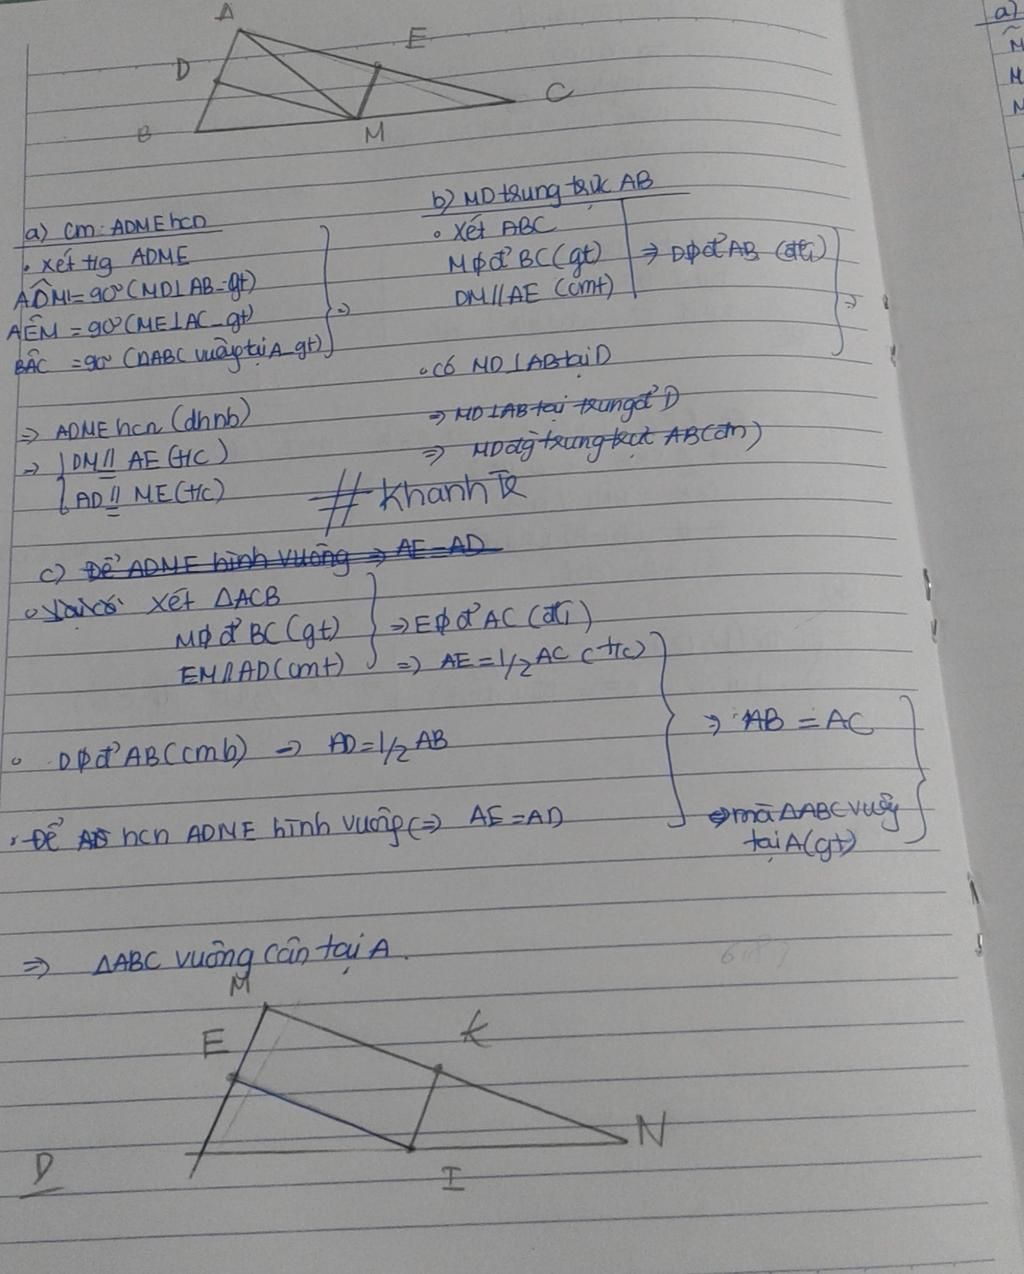 A
E
D
C
B
M
a) cm: ADME hcn
• xét t/g ADME
ADM̂ = 90° (MD⊥AB-gt)
AÊM = 90° (ME⊥AC-gt)
BÂC = 90° (ΔABC vuông tại A gt)
⇒
⇒ ADME hcn (dhnb)
⇒ DM // AE (t/c)
AD // ME (t/c)
b) MD trung trực AB
• xét ABC
M φ đ' BC (gt)
DM // AE (cmt)
⇒ D φ đ' AB (đl1)
⇒
• có MD ⊥ AB tại D
⇒ MD⊥AB tại trung đ' D
⇒ MD đg trung trực AB (đn)
# Khanh
c) Để ADME hình vuông ⇒ AE = AD
xét ΔACB
M φ đ' BC (gt)
EM // AD (cmt)
⇒ E φ đ' AC (đl1)
⇒ AE = 1/2 AC (t/c)
• D φ đ' AB (cmb) ⇒ AD = 1/2 AB
• Để hcn ADME hình vuông ⇔ AE = AD
⇒ AB = AC
mà ΔABC vuông
tại A (gt)
⇒ ΔABC vuông cân tại A.
M
E
K
N
D
I
a)
M
M